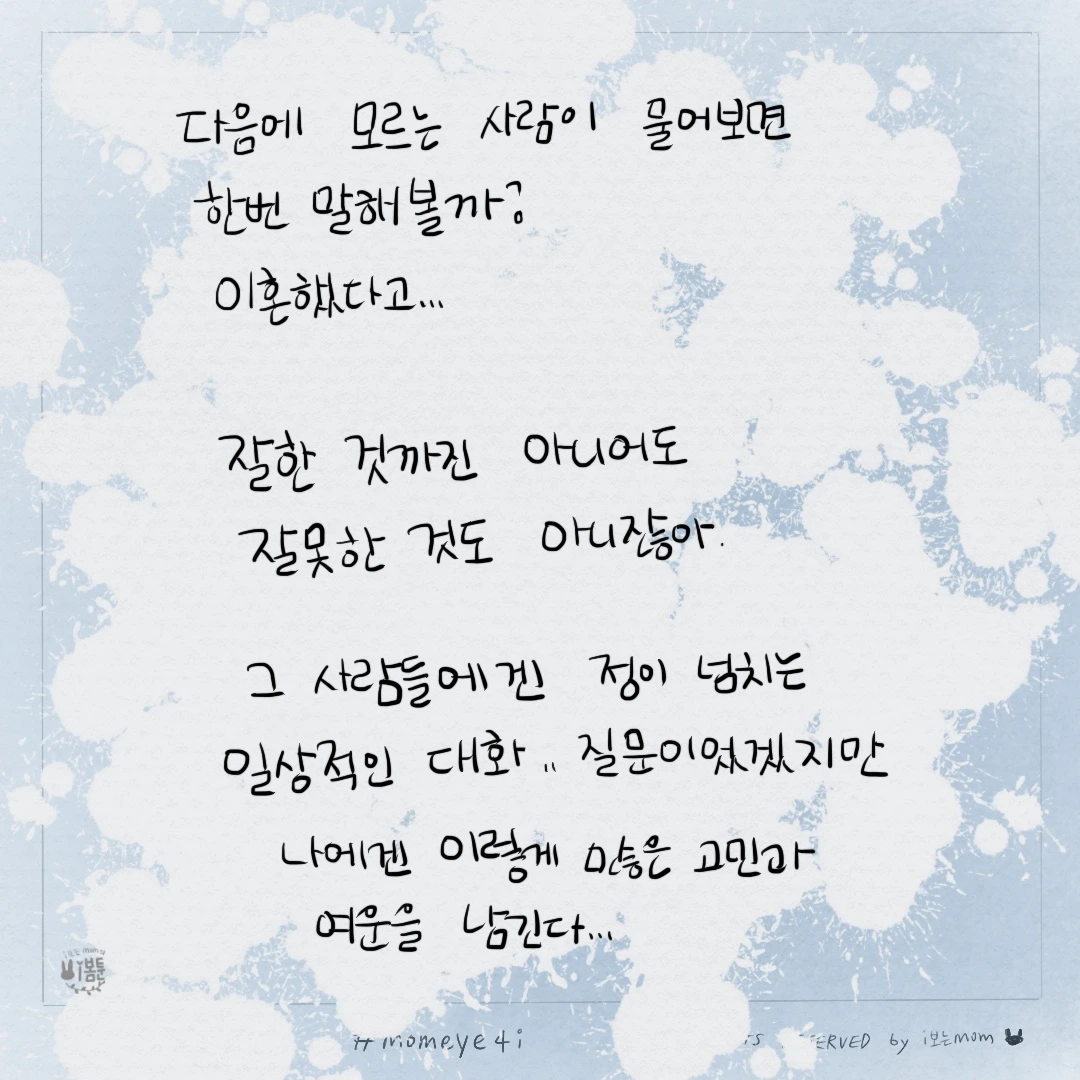 다음에 모르는 사람이 물어보면
한번 말해볼까?
이혼했다고...
잘한 것까진 아니어도
잘못한 것도 아니잖아.
그 사람들에겐 정이 넘치는
일상적인 대화.. 질문이었겠지만
나에겐 이렇게 많은 고민과
여운을 남긴다...
i보는 mom의
i봄툰
#momeye4i
ERVED by i보는mom